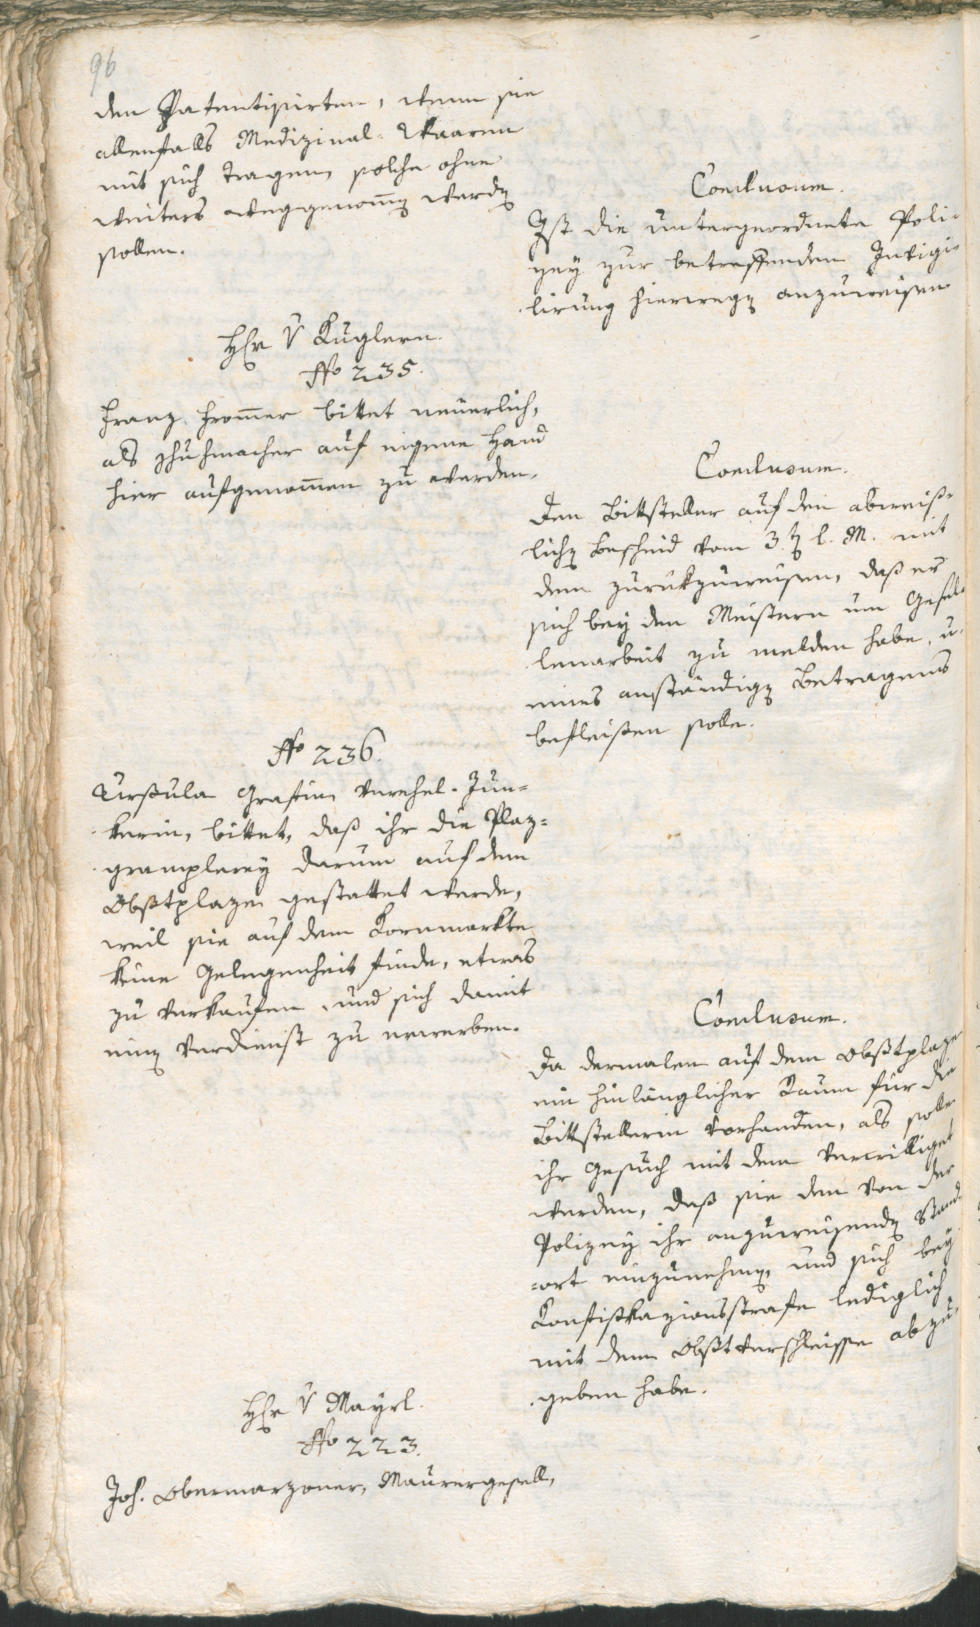 96
den Patentisirten, wenn sie
allenfalls Medizinal-Waaren
mit sich tragen, solche ohne
weiters weggenomen werden
sollen.
Conclusum.
Ist die untergeordnete Poli-
zey zur betreffenden Invigi-
lirung hierwegen anzuweisen
Hr v Kuglern.
No 235.
Franz Fromer bittet neuerlich,
als Schuhmacher auf eigene Hand
hier aufgenomen zu werden.
Conclusum.
Den Bittsteller auf den abweiß-
lichen Bescheid vom 3. l. M. mit
dem zurükzuweisen, daß er
sich bey den Meistern um Gesel-
lenarbeit zu melden habe, u.
eines anständigen Betragens
befleißen solle.
No 236.
Ursula Grafin verehel. Jun-
kerin, bittet, daß ihr die Plaz-
gramplerey darum auf dem
Obstplaze gestattet werde,
weil sie auf dem Kornmarkte
keine Gelegenheit finde, etwas
zu verkaufen und sich damit
einen Verdienst zu erwerben.
Conclusum.
Da dermalen auf dem Obstplaze
ein hinlänglicher Raum für die
Bittstellerin vorhanden, als solle
ihr Gesuch mit dem verwilliget
werden, daß sie den von der
Polizey ihr anzuweisenden Stand-
ort einzunehmen, und sich bey
Konfiskazionsstrafe lediglich
mit dem Obstverschleisse abzu-
geben habe.
Hr v Mayrl.
No 223.
Joh. Obermarzoner, Maurergesell,